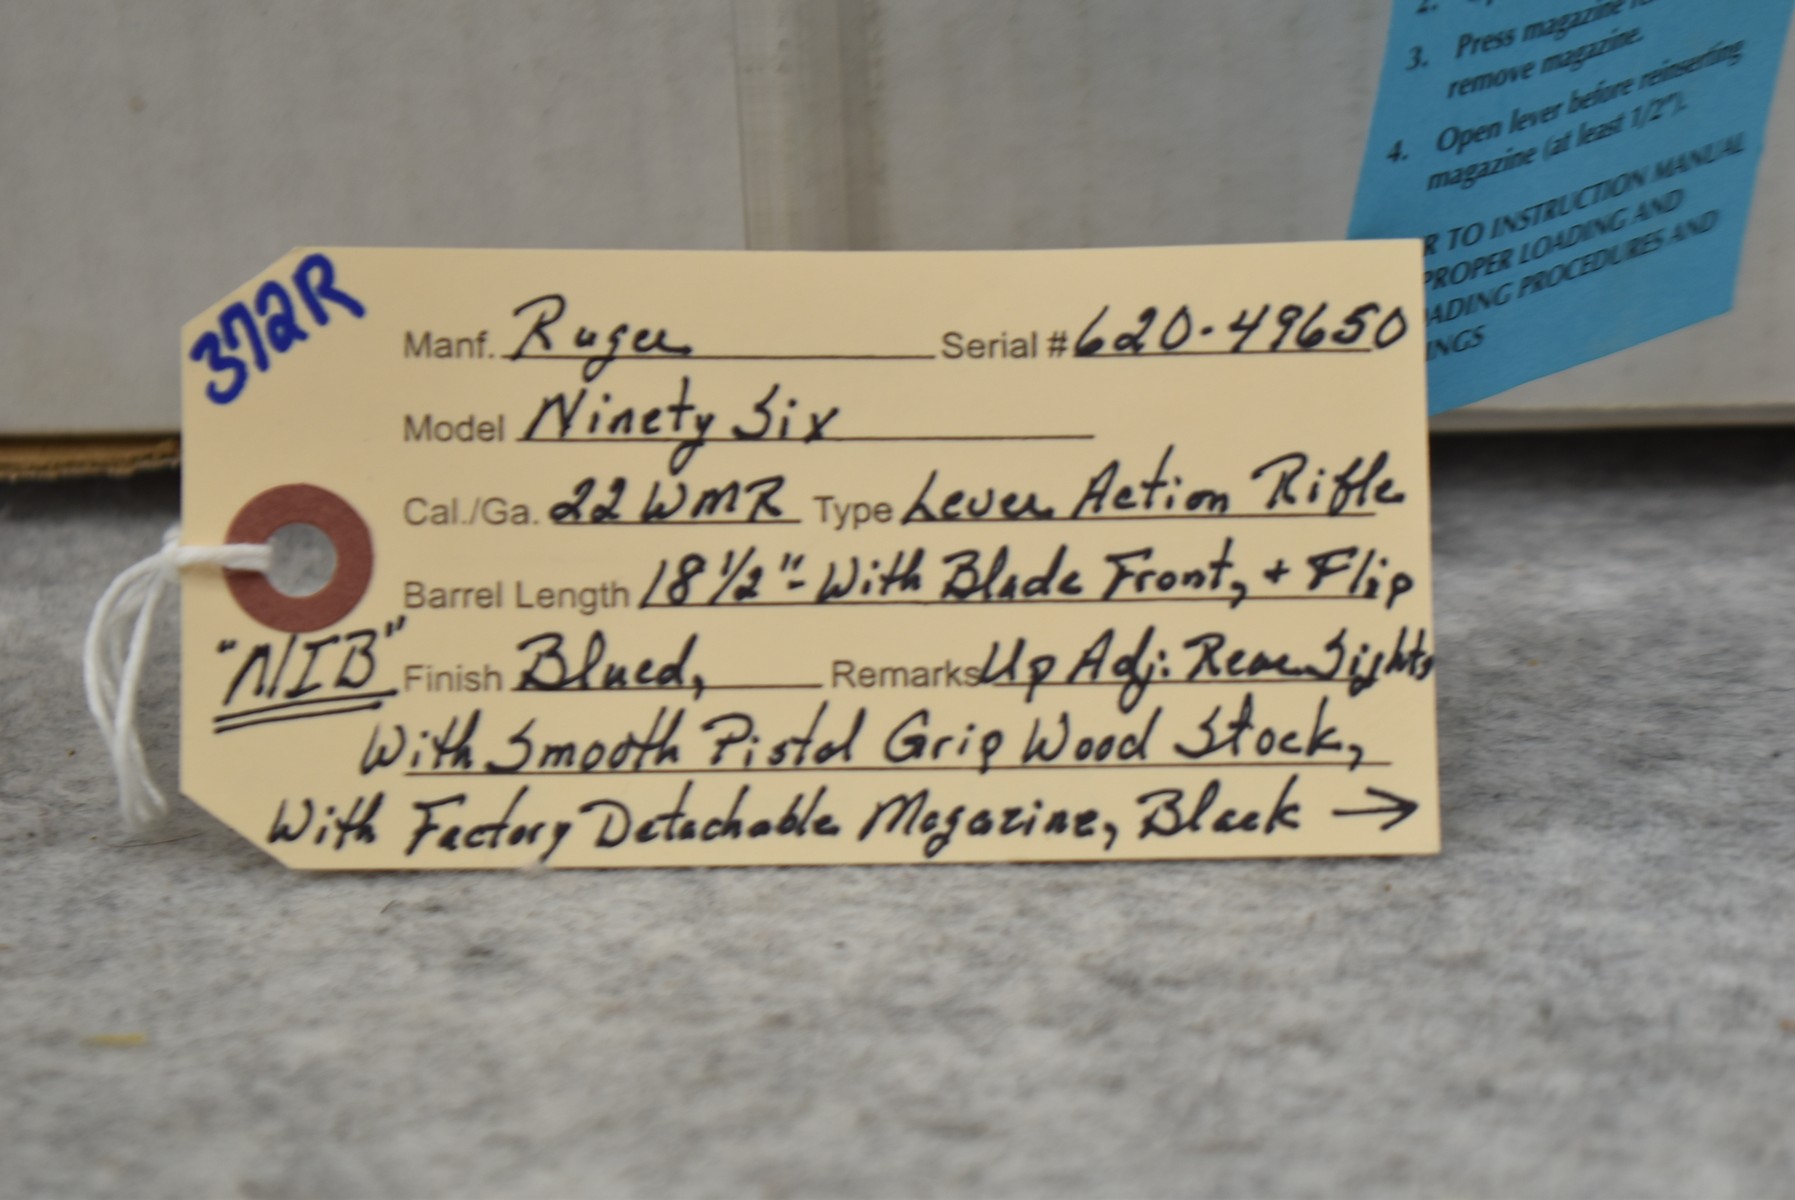 2.
3. Press magazine
remove magazine.
4. Open lever before reinserting
magazine (at least 1/2").
R TO INSTRUCTION MANUAL
PROPER LOADING AND
OADING PROCEDURES AND
INGS
372R
Manf. Ruger Serial # 620-49650
Model Ninety Six
Cal./Ga. 22 WMR Type Lever Action Rifle
Barrel Length 18 1/2"- With Blade Front, + Flip
"NIB" Finish Blued, Remarks Up Adj: Rear Sights,
With Smooth Pistol Grip Wood Stock,
With Factory Detachable Magazine, Black →